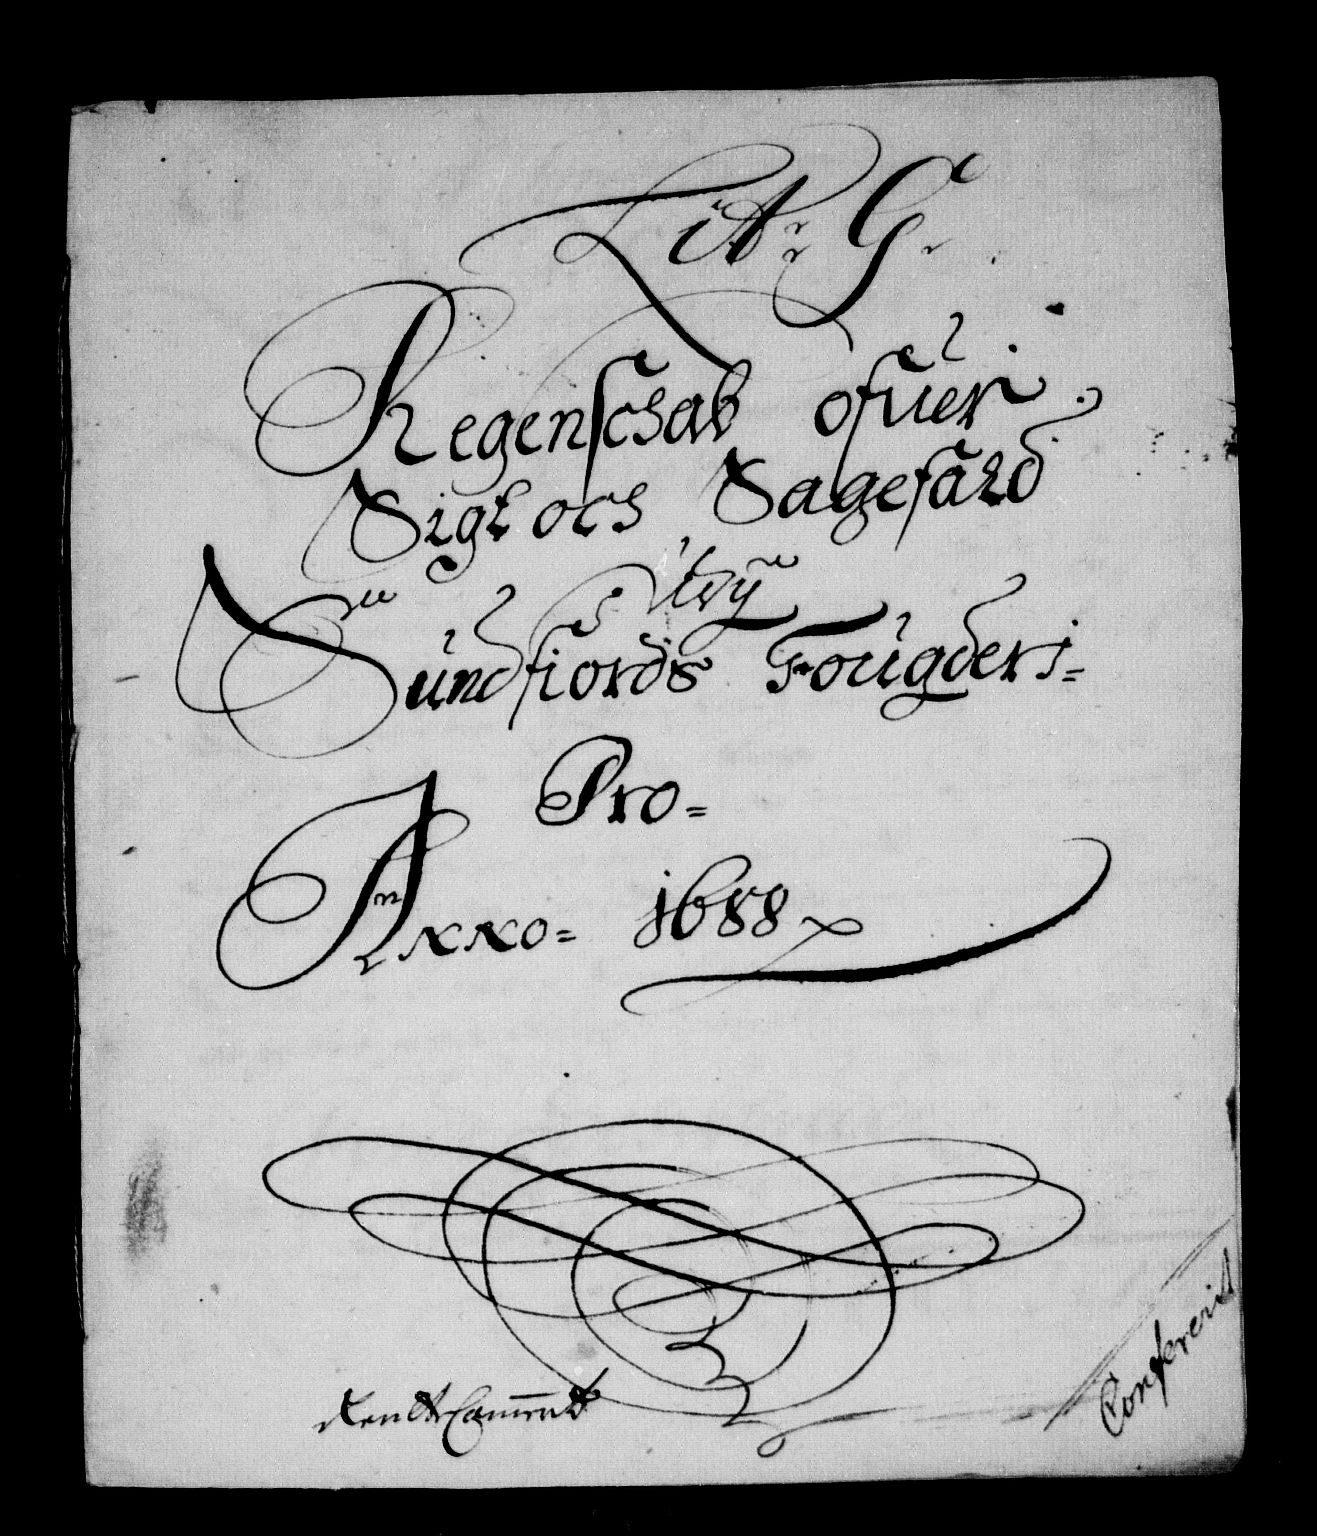 Litr: G.
Regenschab ofüer
Sigt och Sagefald
udj
Sündfiords Fougderj=
Pro=
Anno= 1688
Rente Cammerit
Confererit